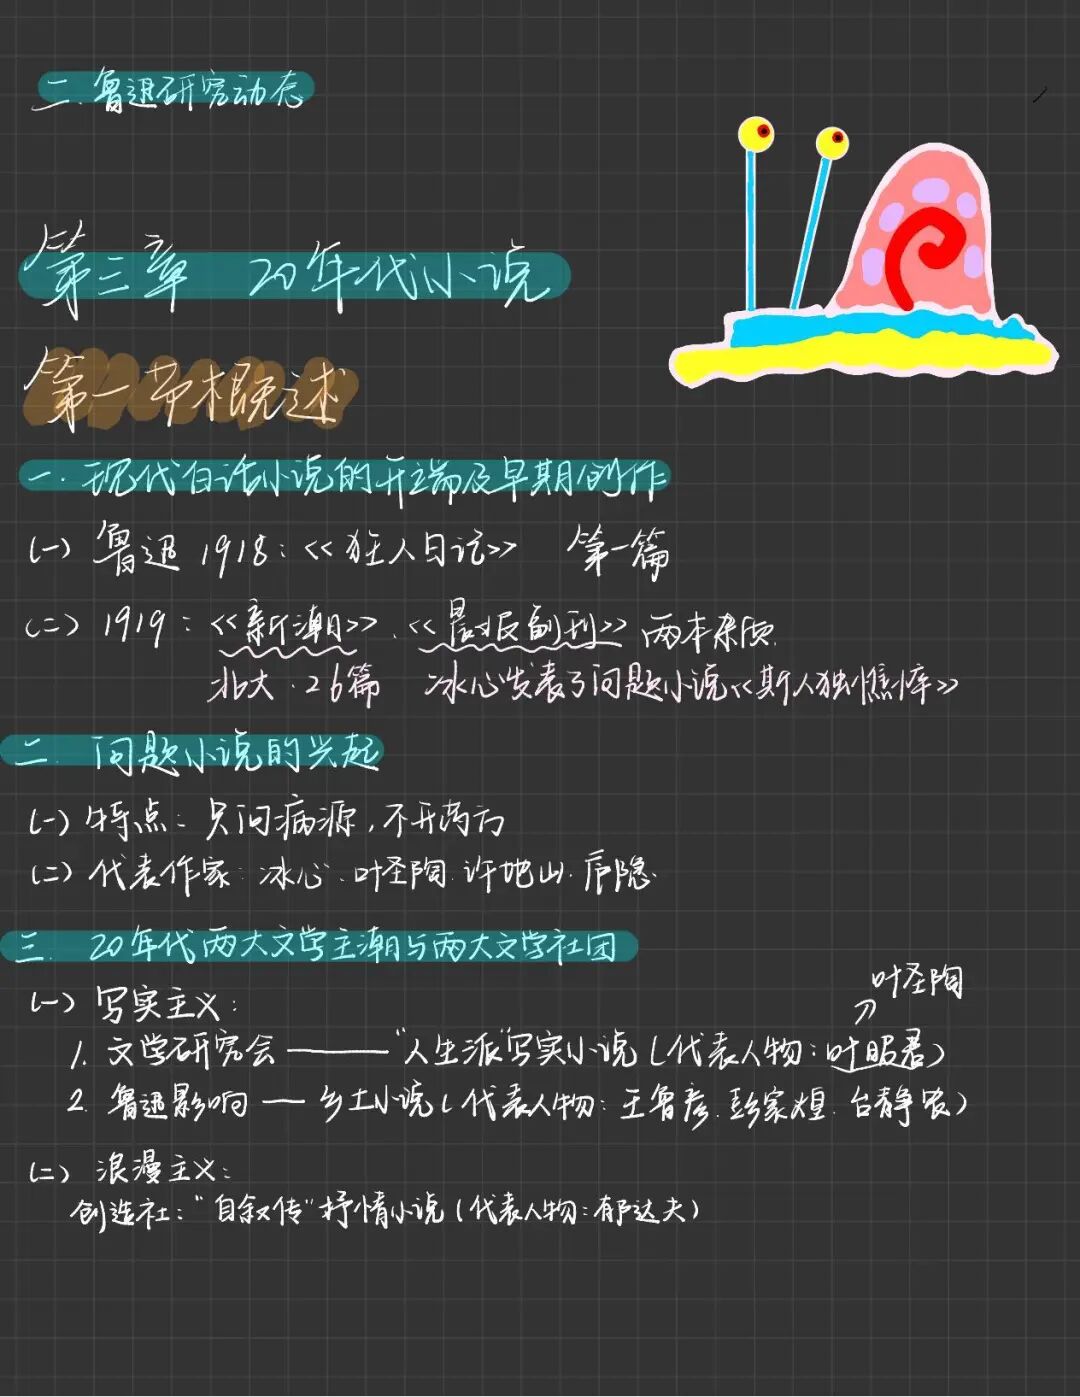 二.鲁迅研究动态
第三章 20年代小说
第一节概述
一.现代白话小说的开端及早期创作
(一) 鲁迅1918:<<狂人日记>> 第一篇
(二) 1919:<<新潮>>.<<晨报副刊>>两本杂质.
北大.26篇 冰心发表了问题小说<<斯人独憔悴>>
二. 问题小说的兴起
(一) 特点:只问病源,不开药方
(二) 代表作家:冰心.叶圣陶.许地山.庐隐.
三. 20年代两大文学主潮与两大文学社团
(一) 写实主义:
叶圣陶
1. 文学研究会——"人生派"写实小说(代表人物:叶昭君)
2. 鲁迅影响—乡土小说(代表人物:王鲁彦.彭家煌.台静农)
(二) 浪漫主义:
创造社:"自叙传"抒情小说(代表人物:郁达夫)